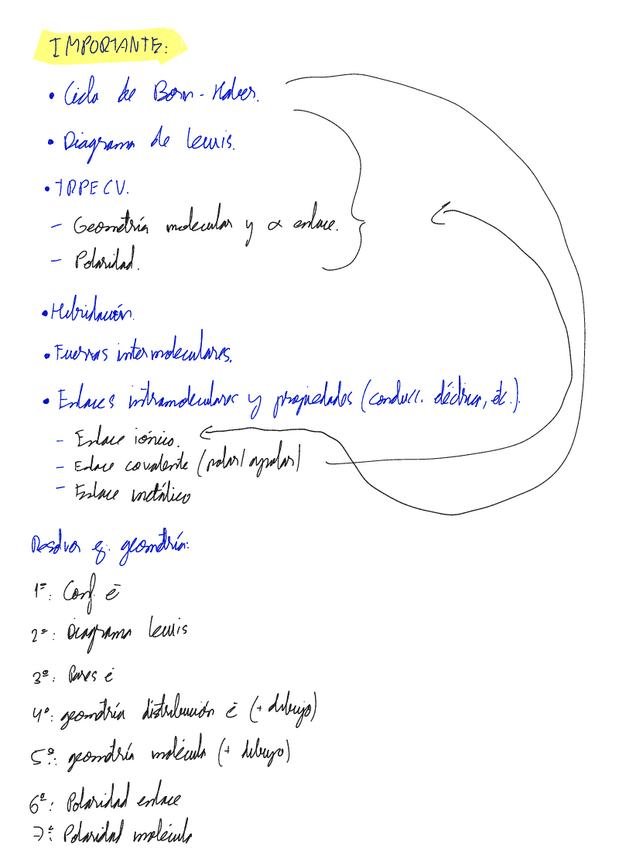 IMPORTANTE:
• Ciclo de Born-Haber.
• Diagrama de Lewis.
• TRPECV.
– Geometría molecular y α enlace.
– Polaridad.
• Hibridación.
• Fuerzas intermoleculares.
• Enlaces intramoleculares y propiedades (conduc. eléctrica, etc.).
– Enlace iónico.
– Enlace covalente (polar/apolar)
– Enlace metálico
Resolver ej. geometría:
1º: Conf. ē
2º: Diagrama Lewis
3º: Pares ē
4º: geometría distribución ē (+ dibujo)
5º: geometría molécula (+ dibujo)
6º: Polaridad enlace
7º: Polaridad molécula